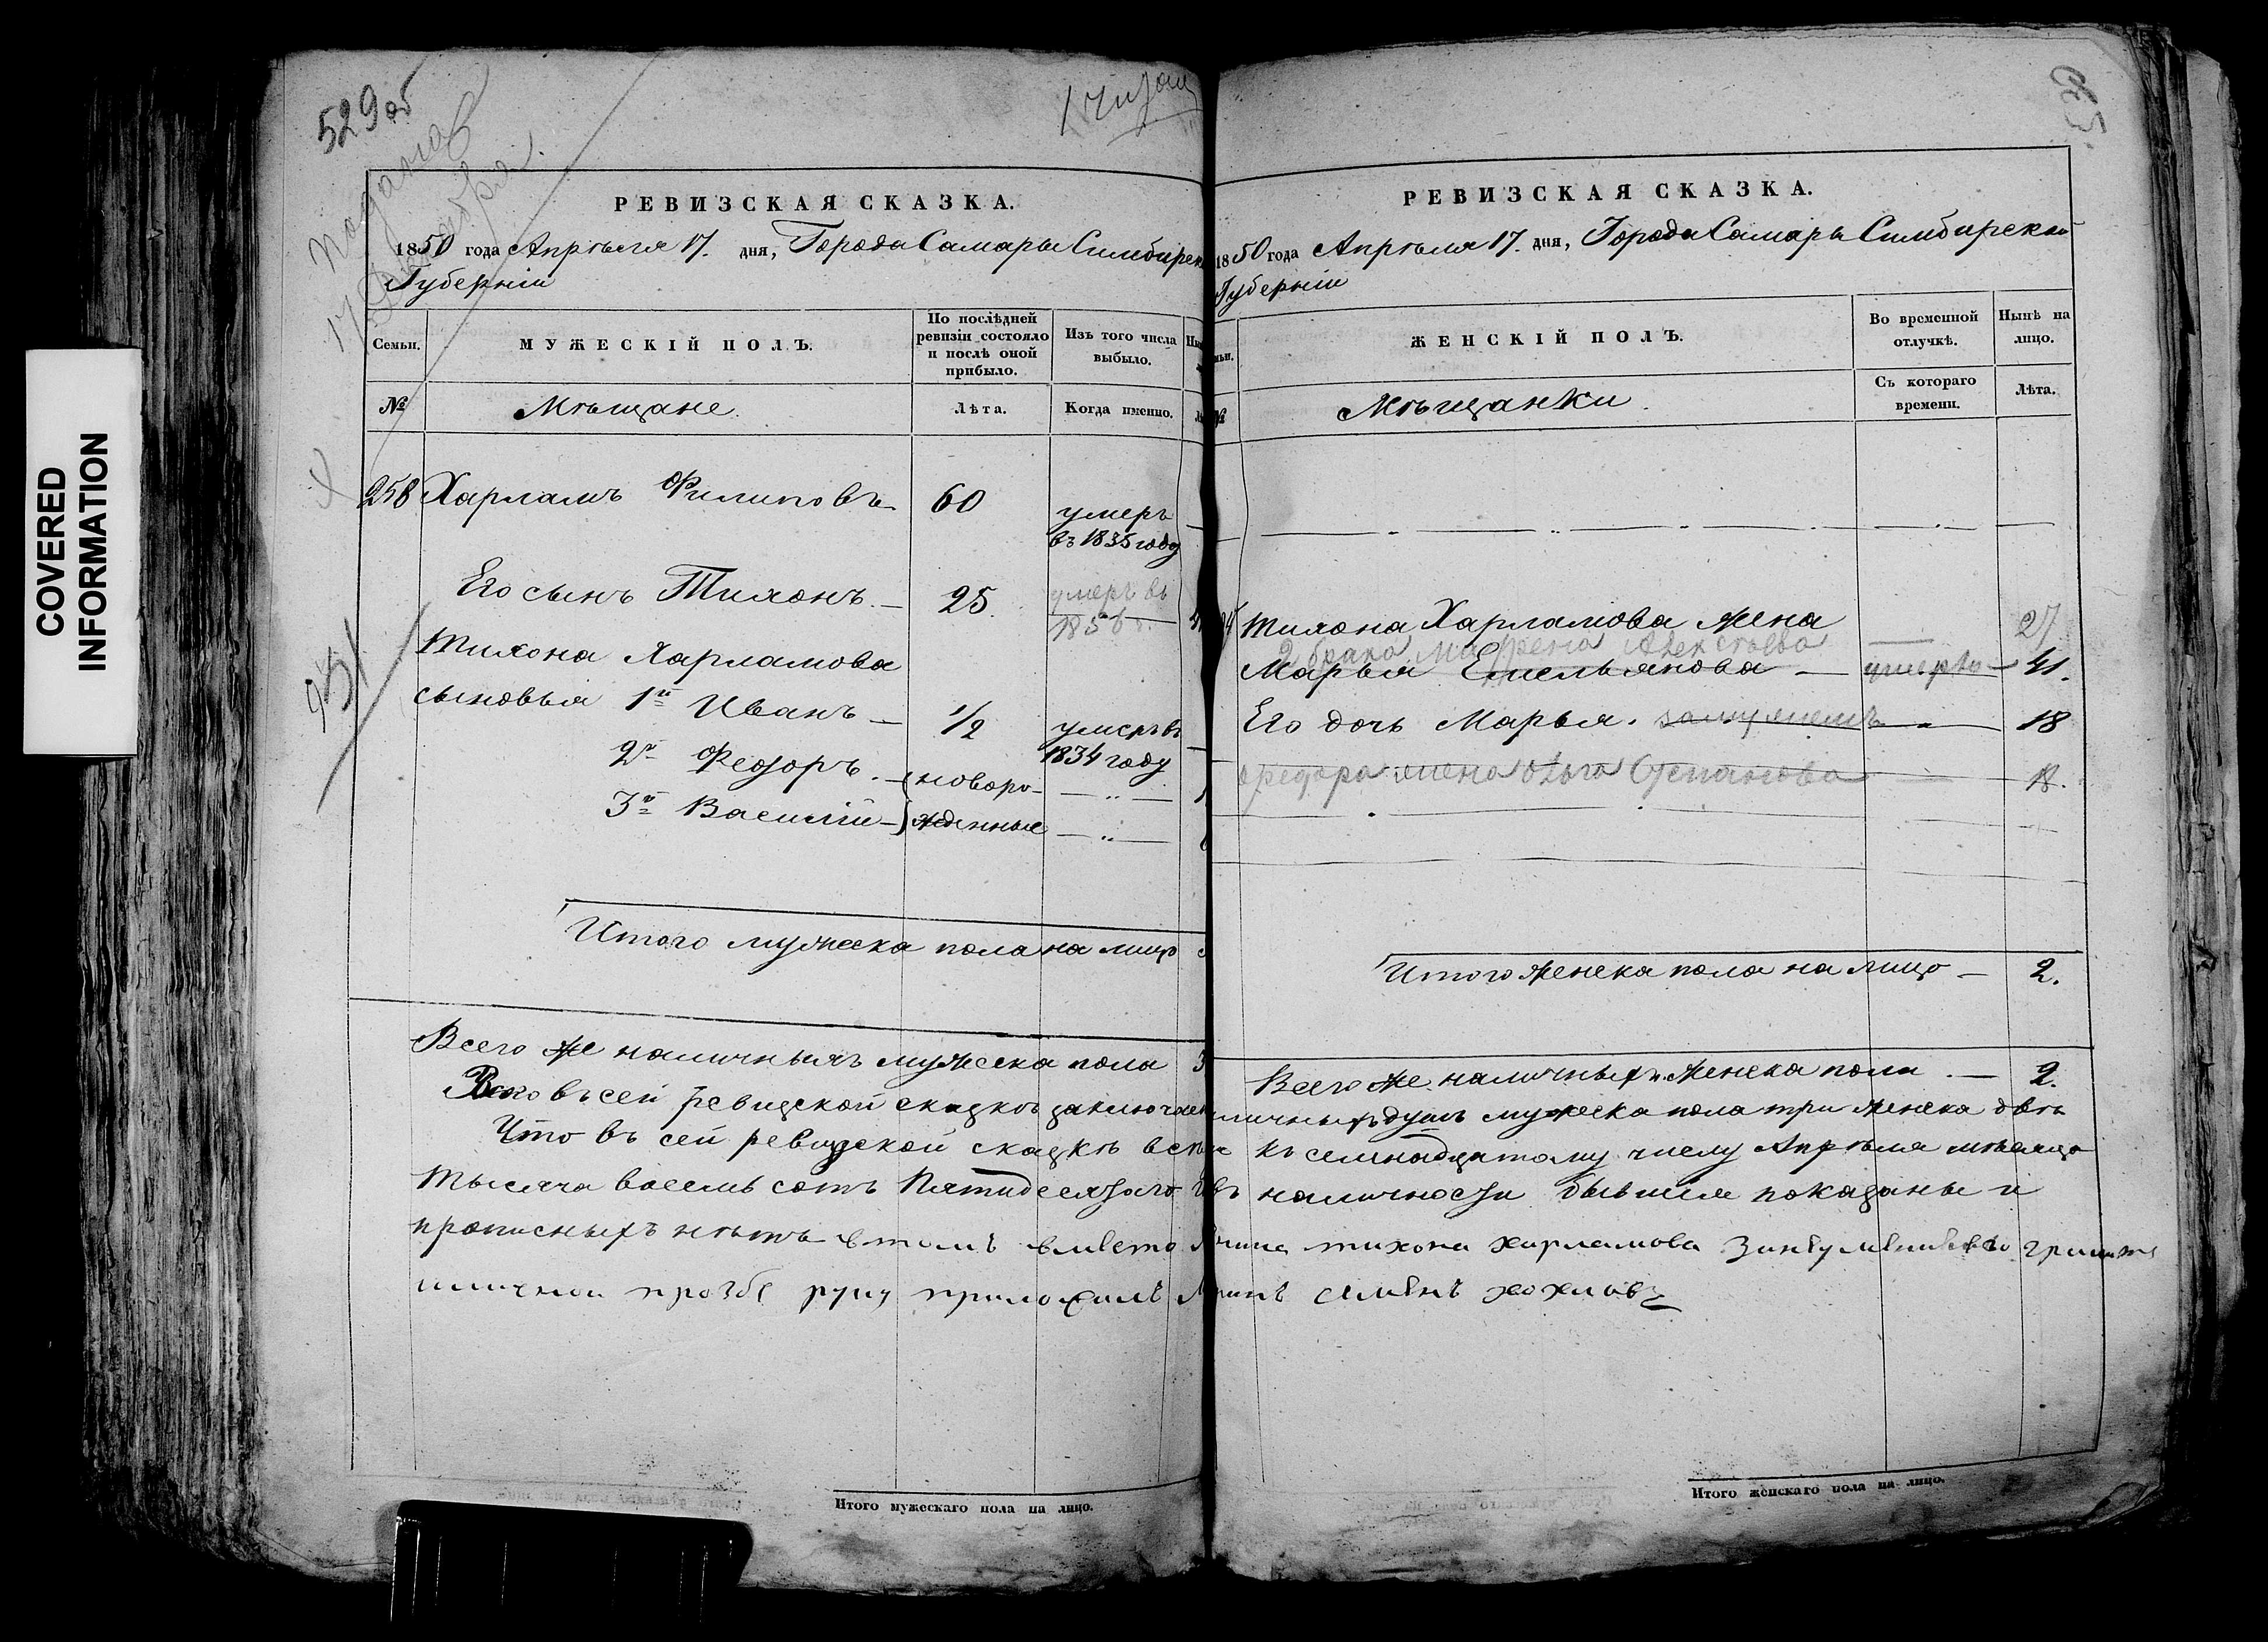 COVERED
INFORMATION
529 об
1 читал
РЕВИЗСКАЯ СКАЗКА.
1850 года Апрѣля 17. дня, Города Самары Симбирск
Губерніи
Семьи.
МУЖЕСКІЙ ПОЛЪ.
По послѣдней
ревизіи состояло
и послѣ оной
прибыло.
Изъ того числа
выбыло.
№
Мѣщане.
Лѣта.
Когда именно.
258 Харламъ Филиповъ 60
умеръ
въ 1835 году
Его сынъ Тихонъ. — 25.
умеръ въ
185
Тихона Харламова
сыновья 1й Иванъ — 1/2
умеръ въ
1834 году
2й Федоръ. — новоро-
3й Василій — жденные
Итого мужеска пола на лицо
Всего же наличныхъ мужеска пола 3
Всего въ сей ревизской сказкѣ заключает
Что въ сей ревизской сказкѣ всѣ
тысяча восемь сотъ Пятидесятого
прописныхъ нѣтъ втомъ вместо
иличной прозбе руку приложилъ
Итого мужескаго пола на лицо.
РЕВИЗСКАЯ СКАЗКА.
1850 года Апрѣля 17. дня, Города Самары Симбирской
Губерніи
ЖЕНСКІЙ ПОЛЪ.
Во временной
отлучкѣ.
Нынѣ на
лицо.
№
Мѣщанки.
Съ котораго
времени.
Лѣта.
Тихона Харламова жена 27
2 брака Матрена Алексѣева
Марья Емельянова — умерла — 41.
Его дочь Марья. замужемъ 18
Федора жена Степанова 18.
Итого женска пола на лицо — 2.
Всего же наличныхъ женска пола — 2.
личныхъ душъ мужеска пола три женска двѣ
къ семнадцатому числу Апрѣля мѣсяца
въ наличности бывшія показаны и
тихона харламова грамоте
семенъ хохловъ
Итого женскаго пола на лицо.